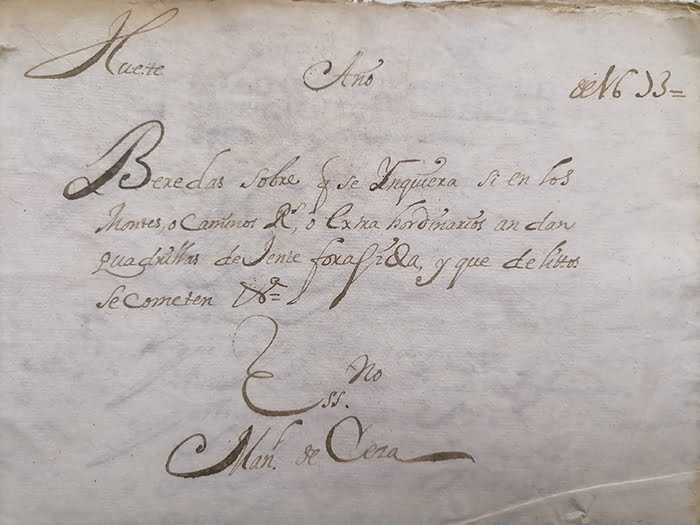 Huete Año de 1693=
Beredas sobre q se Ynquiera si en los
Montes, o Caminos Rs, o Extrahordinarios andan
quadrillas de Jente foragida, y que delittos
se cometen &ª=
Essno
Manl de Ceza